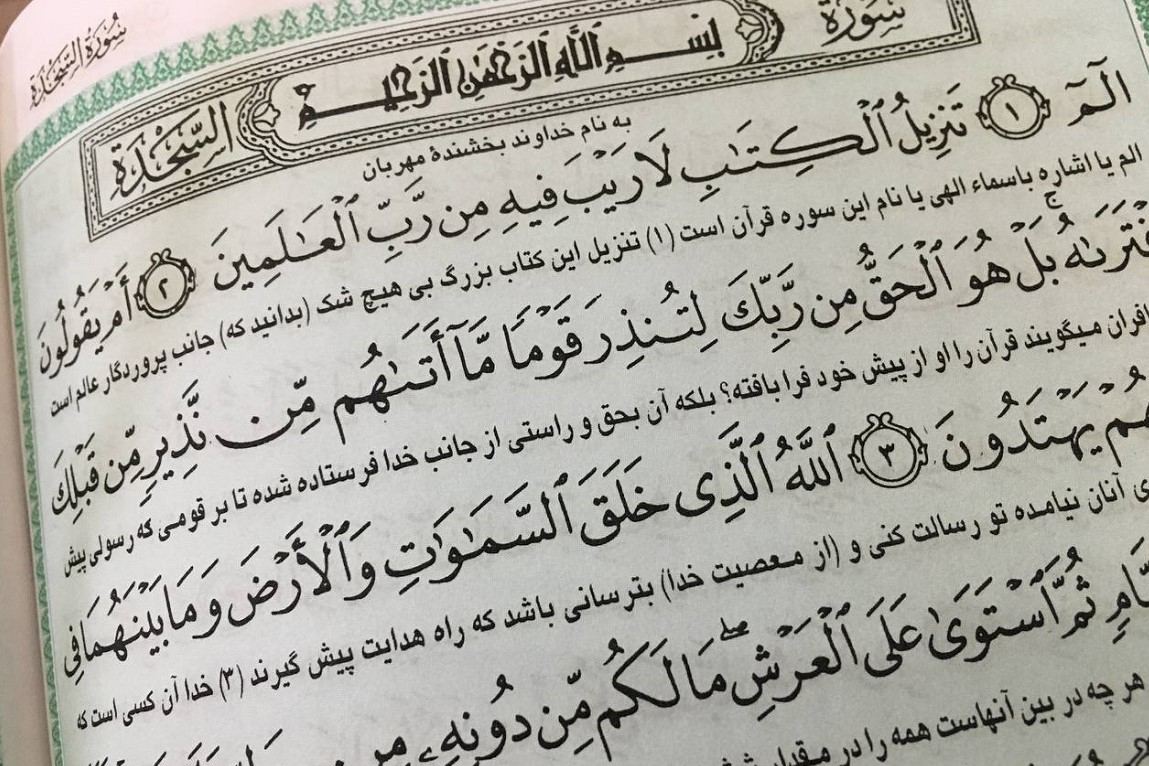 سُورَةُ السَّجْدَةِ
سُورَةُ
بِسْمِ ٱللَّهِ ٱلرَّحْمَٰنِ ٱلرَّحِيمِ
السَّجْدَةِ
به نام خداوند بخشندهٔ مهربان
الٓمٓ ١ تَنزِيلُ ٱلْكِتَٰبِ لَا رَيْبَ فِيهِ مِن رَّبِّ ٱلْعَٰلَمِينَ ٢ أَمْ يَقُولُونَ
الم یا اشاره باسماء الهی یا نام این سوره قرآن است (۱) تنزیل این کتاب بزرگ بی هیچ شک (بدانید که) جانب پروردگار عالم است
بَلْ هُوَ ٱلْحَقُّ مِن رَّبِّكَ لِتُنذِرَ قَوْمًا مَّآ أَتَىٰهُم مِّن نَّذِيرٍ مِّن قَبْلِكَ
میگویند قرآن را او از پیش خود فرا بافته؟ بلکه آن بحق و راستی از جانب خدا فرستاده شده تا بر قومی که رسولی پیش
يَهْتَدُونَ ٣ ٱللَّهُ ٱلَّذِى خَلَقَ ٱلسَّمَٰوَٰتِ وَٱلْأَرْضَ وَمَا بَيْنَهُمَا فِى
آنان نیامده تو رسالت کنی و (از معصیت خدا) بترسانی باشد که راه هدایت پیش گیرند (۳) خدا آن کسی است که
ثُمَّ ٱسْتَوَىٰ عَلَى ٱلْعَرْشِ ۖ مَا لَكُم مِّن دُونِهِۦ مِن
هر چه در بین آنهاست همه را در مقدار